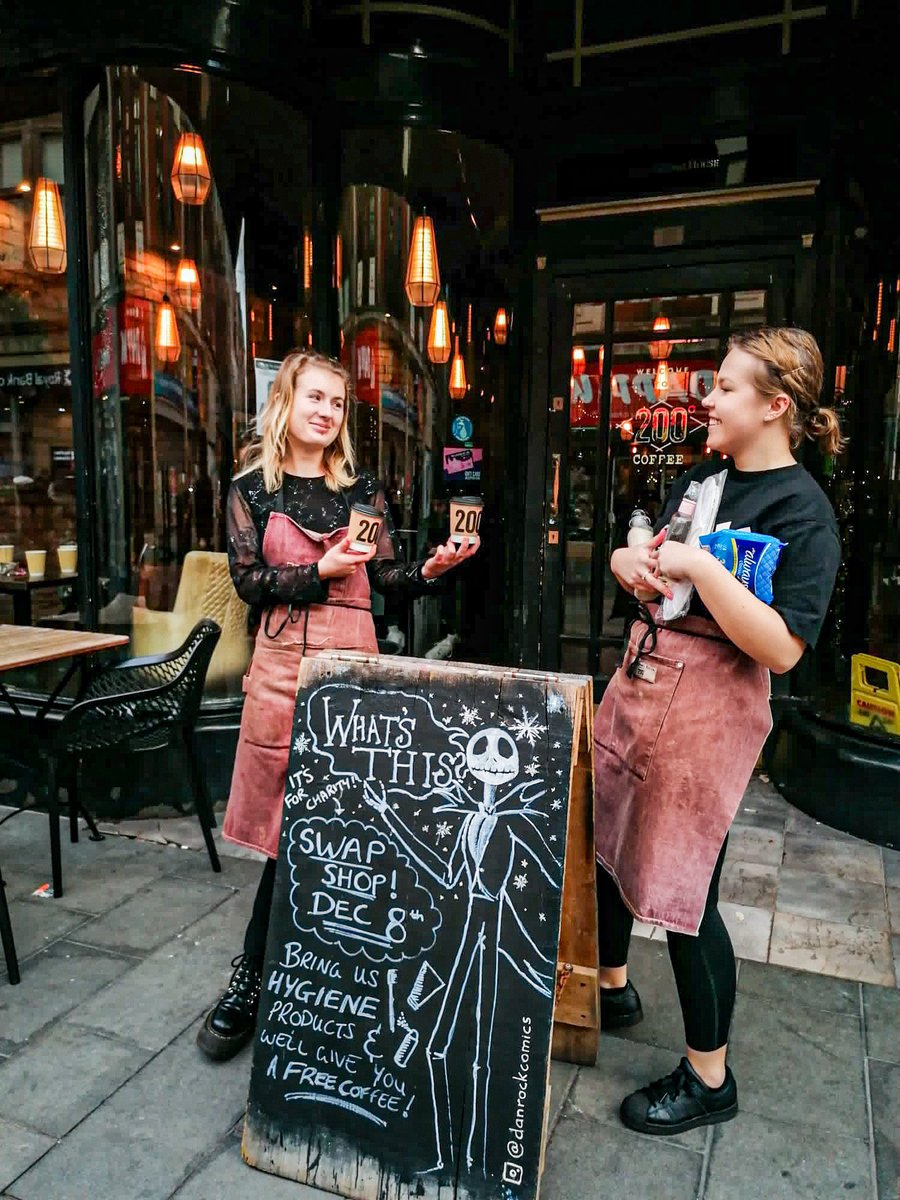 House
Royal Bank o
WELCOME
200°
COFFEE
200
200
always
CAUTION
WHAT'S
THIS?
IT'S
FOR CHARITY!
SWAP
SHOP!
DEC 8th
BRING US
HYGIENE
PRODUCTS &
WE'LL GIVE YOU
A FREE COFFEE!
@danrockcomics